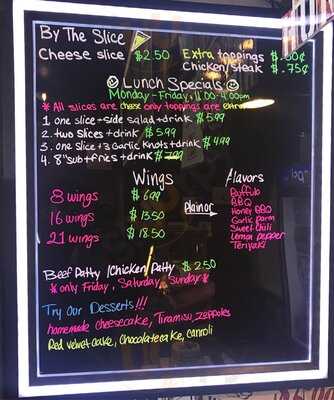 By The Slice
Cheese slice $2.50 Extra toppings $.50¢
Chicken/steak $.75¢
Lunch Specials
Monday-Friday 11:00-4:00pm
* All slices are cheese only toppings are extra
1. one slice + side salad + drink $5.99
2. two slices + drink $5.99
3. one slice + 3 Garlic Knots + drink $4.99
4. 8" sub + fries + drink $7.99
Wings
8 wings $6.99
16 wings $13.50
21 wings $18.50
Plain or
Flavors
Buffulo
BBQ
Honey BBQ
Garlic parm
Sweet chili
Lemon pepper
Teriyaki
Beef Patty / Chicken Patty $2.50
* only Friday, Saturday, Sunday *
Try Our Desserts!!!
homemade cheesecake, Tiramisu, zeppoles
Red velvet cake, Chocolate cake, cannoli